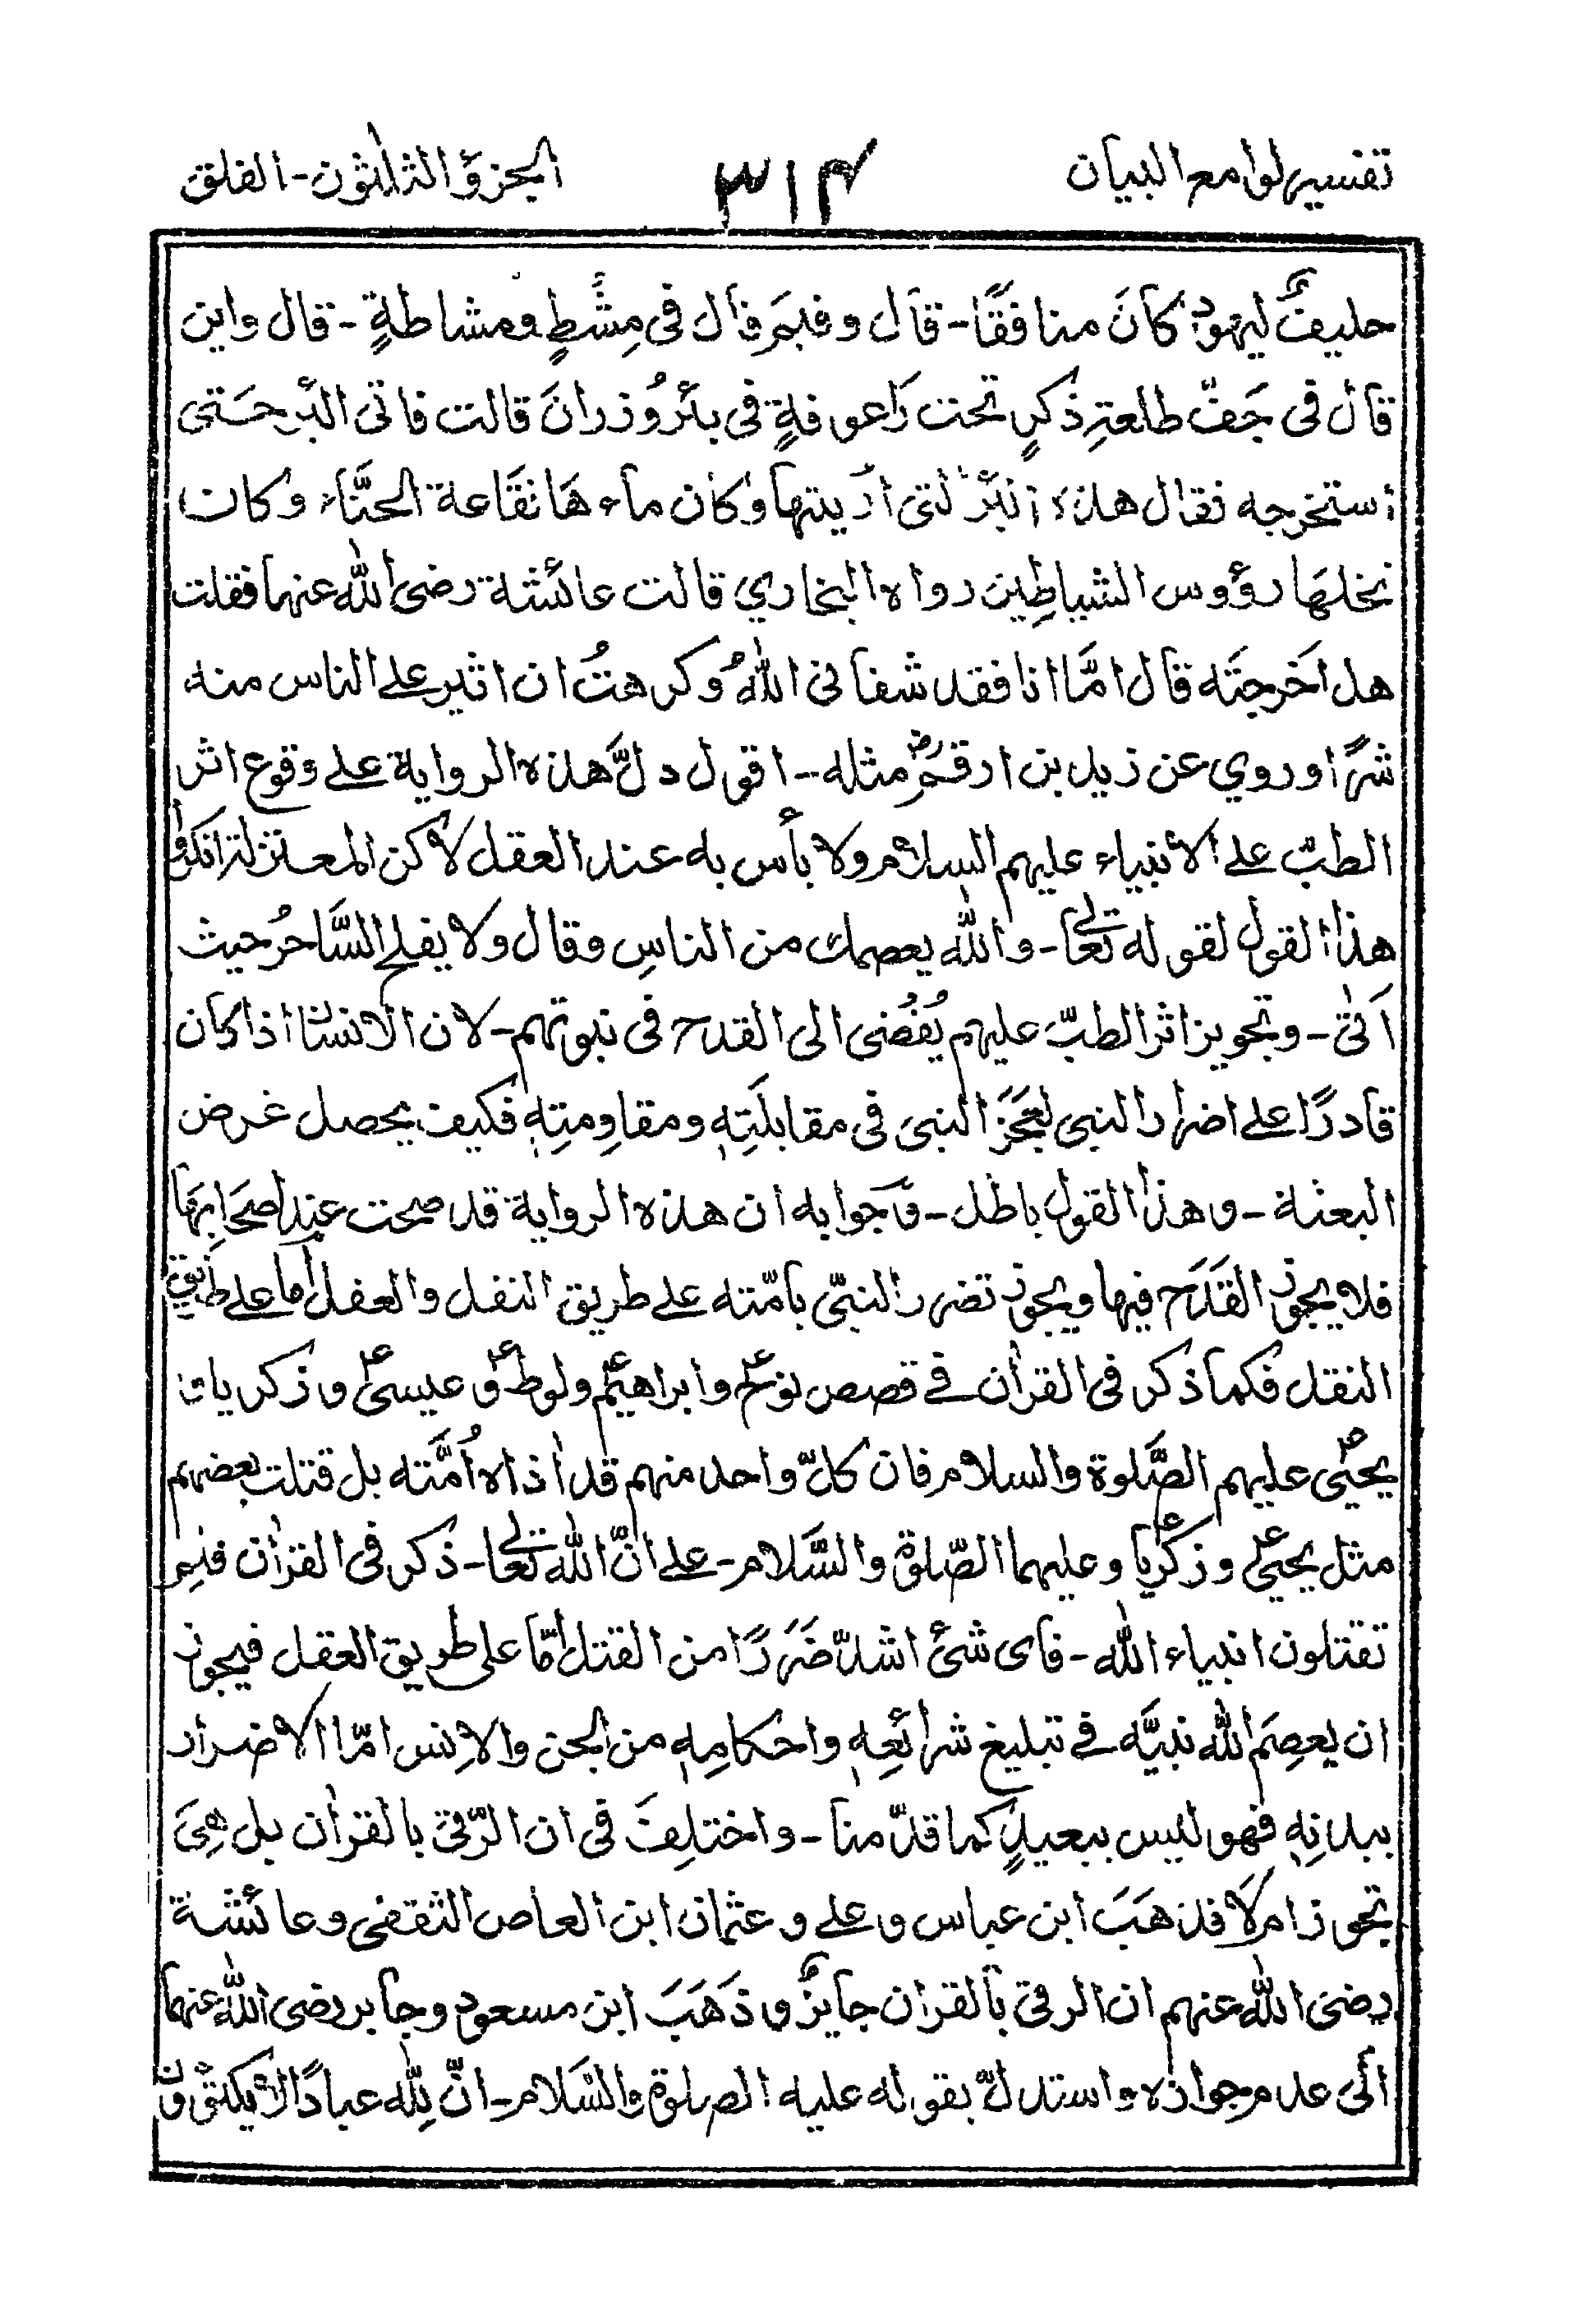 تفسیر لوامع البیان ۳۱۴ الجزؤ الثلٰثون - الفلق
حلیفٌ لیهود کانَ منافقًا - قال وفیمَ قال فی مِشطٍ ومشاطةٍ - قال واین
قال فی جَفّ طلعةِ ذکرٍ تحت رَاعوفةٍ فی بئرُ وذرانَ قالت فاتی البئر حَتی
استخرجه فقال هذه البئر لتی اُریتها وکان ماءهَا نقَاعة الحنَّاء وکان
نخلهَا رؤوس الشیاطِین رواه البخاری قالت عائشة رضی الله عنها فقلت
هل اَخرجتَه قال امَّا انا فقد شفانی اللهُ وکرهتُ ان اثیر علی الناس منه
شرًّا وروی عن زید بن ارقمؓ مثله - اقول دلَّ هذه الروایة علی وقوع اثر
الطبّ علی الانبیاء علیهم السلام ولا بأس به عند العقل لاکن المعتزلة انکروا
هذا القول لقوله تعالی - والله یعصمك من الناسِ وقال ولا یفلح السَّاحرُ حیث
اَتٰی - وتجویز اثر الطبّ علیهم یُفُضی الی القدح فی نبوتهم - لان الانسان اذا کان
قادرًا علی اضرار النبی لعَجَزَ النبی فی مقابلَتِهٖ ومقاوِمتِهٖ فکیف یحصل غرض
البعثة - وهذا القول باطل - وَجوابه ان هذه الروایة قد صحت عند اصحَابِهَا
فلا یجوز القَدَح فیها ویجوز تضرر النبّی بامّته علی طریق النقل والعقل اما علی طریق
النقل فکما ذکر فی القراٰن فی قصص نوحؑ وابراهیمؑ ولوطؑ و عیسیٰؑ و ذکریا و
یحییٰؑ علیهم الصَّلوة والسلام فان کلّ واحد منهم قد اٰذاه اُمَّته بل قتلت بعضهم
مثل یحییؑ وزکریاؑ وعلیهما الصّلوة والسَّلام - علی انّ الله تعالی - ذکر فی القراٰن فلِم
تقتلون انبیاء الله - فای شیٔ اشدّ ضَرَرًا من القتل امّا علی طریق العقل فیجوز
ان یعصِمَ الله نبیَّه فی تبلیغ شرائعِهٖ واحکامِهٖ من الجن والاِنس امّا الاضرار
ببدنِهٖ فهو لیس ببعیدٍ کما قدّمنا - واختلِفَ فی ان الرّقی بالقراٰن بل هِیَ
تجوز ام لَا فذهَبَ ابن عباس و علی و عثمان ابن العاص الثقفی وعائشة
رضی الله عنهم ان الرقی بالقران جایزٌ و ذَهَبَ ابن مسعود وجابر رضی الله عنهما
الیٰ عدم جوازه واستدلّ بقوله علیه الصلوة والسَّلام - انّ لِلّٰه عبادًا لا یکتوون